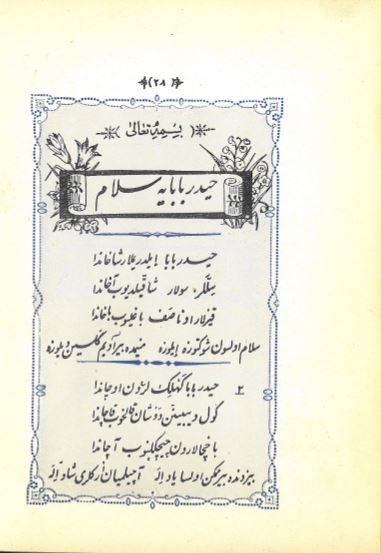 (۲۸)
(بسمه تعالی)
حیدربابایه سلام
حیدربابا ایلدیریملار شاخاندا
سئللر، سولار شاققیلدیوب آخاندا
قیزلار اوناصف باغلیوب باخاندا
سلام اولسون شوکتوزه ایلوزه منیمده بیر آدیم گلسین دیلوزه
۲ حیدربابا کهلیک لرون اوچاندا
کول دیبیننن دوشان قالخوب قاچاندا
باخچالارون چیچکلنوب آچاندا
بیزدنده بیر ممکن اولسا یاد ائله آچیلمیان اُرکلری شاد ائله